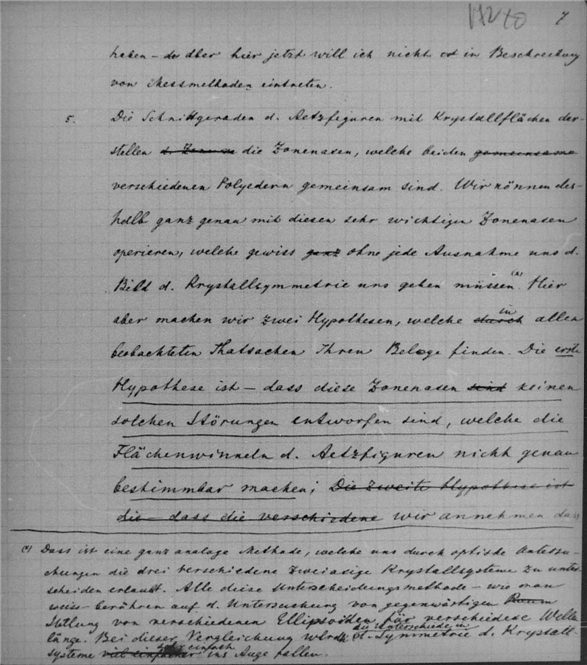 172 40 7
haben – der aber hier jetzt will ich nicht in Beschreibung
von Messmethoden eintreten.
5. Die Schnittgeraden d. Aetzfiguren mit Krystallflächen der-
stellen die Zonenaxen, welche beiden gemeinsame
verschiedenen Polyedern gemeinsam sind. Wir können des-
halb ganz genau mit diesen sehr wichtigen Zonenaxen
operieren, welche gewiss ganz ohne jede Ausnahme uns d.
Bild d. Krystallsymmetrie uns geben müssen. (*) Hier
aber machen wir zwei Hypothesen, welche durch in allen
beobachteten Thatsachen Ihren Belege finden. Die erste
Hypothese ist – dass diese Zonenaxen sind keinen
solchen Störungen entworfen sind, welche die
Flächenwinkeln d. Aetzfiguren nicht genau
bestimmbar machen; Die zweite Hypothese ist
die – dass die verschiedene wir annehmen dass
(*) Dass ist eine ganz analoge Methode, welche uns durch optische Untersu-
chungen die drei verschiedene zweiaxige Krystallsysteme zu unter-
scheiden erlaubt. Alle diese Unterscheidungsmethode – wie man
weiss – berühren auf d. Untersuchung von gegenwärtigen
Stellung von verschiedenen Ellipsoiden für verschiedene Wellen-
länge. Bei dieser Vergleichung die Unterschiede in d. Symmetrie d. Krystall-
systeme viel einfacher einfach ins Auge fallen.